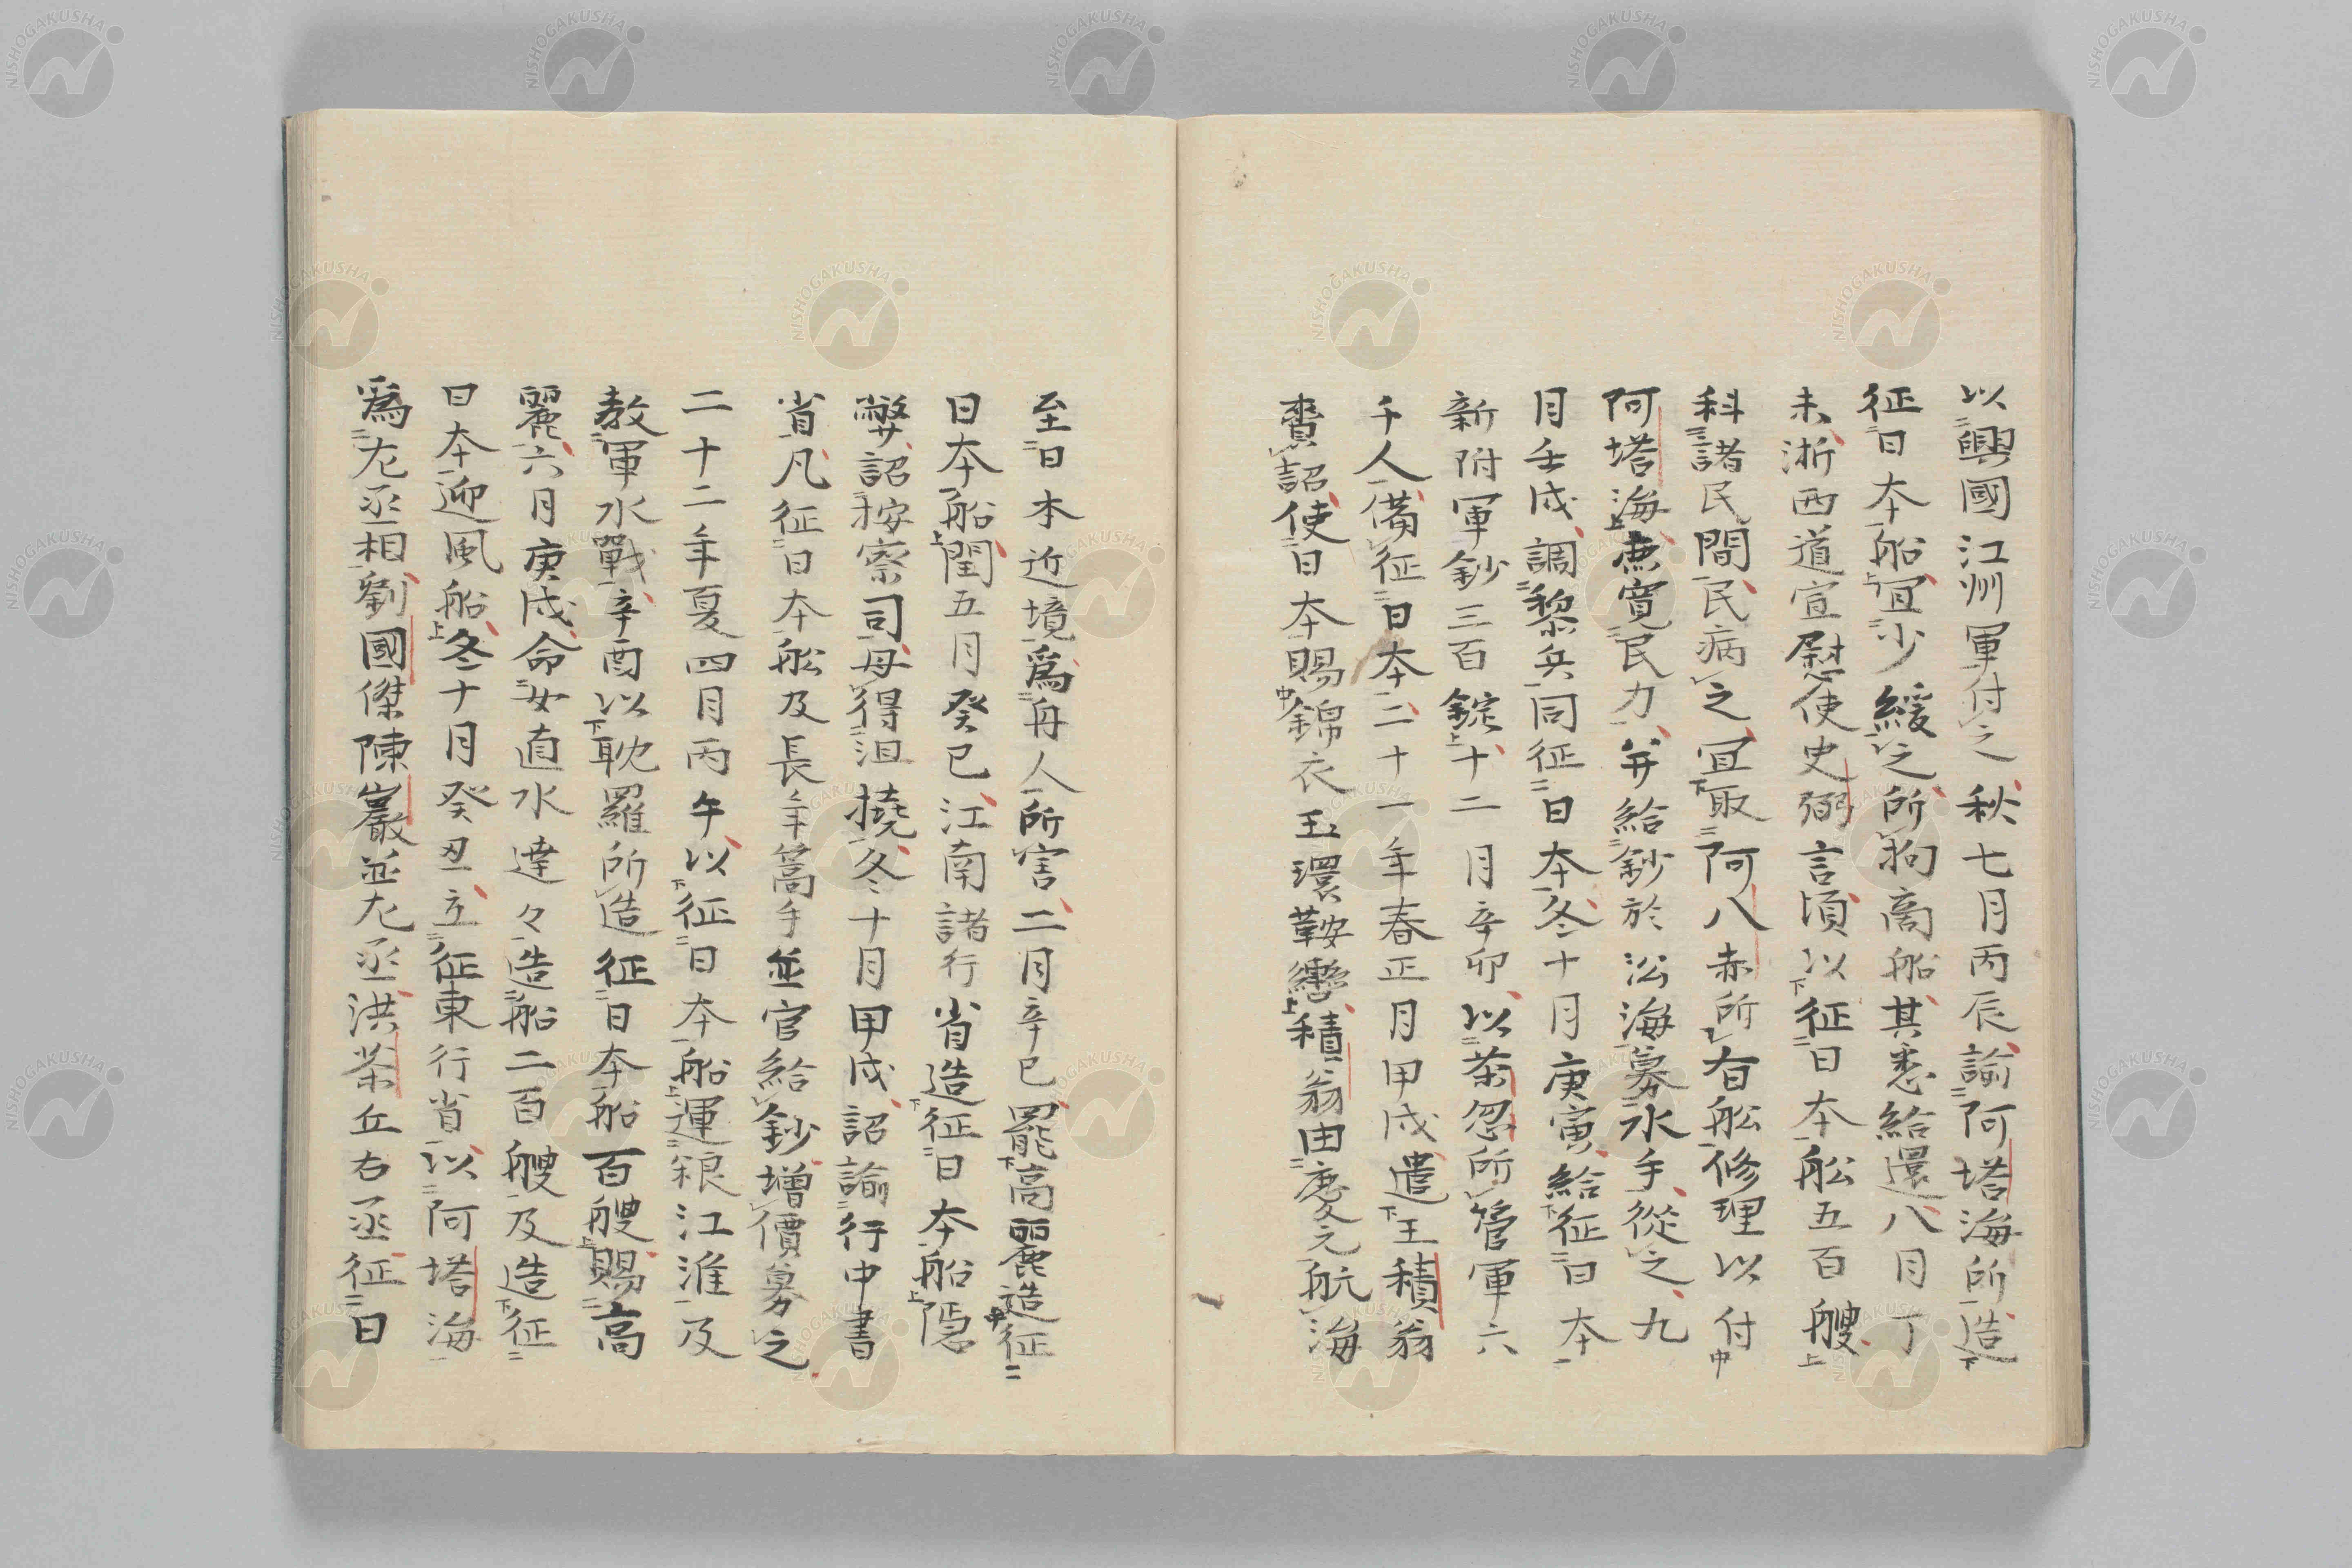 以興國江洲軍付之秋七月丙辰諭阿塔海所造
征日本船冝少緩之所拘商船其悉給還八月丁
未浙西道宣慰使史弼言頃以征日本船五百艘
科諸民間民病之冝取阿八赤所有船修理以付
阿塔海庶寛民力并給鈔於沿海募水手從之九
月壬戌調黎兵同征日本冬十月庚寅給征日本
新附軍鈔三百錠十二月辛卯以茶忽所管軍六
千人備征日本二十一年春正月甲戌遣王積翁
賫詔使日本賜錦衣玉環鞍轡積翁由慶元航海
至日本近境爲舟人所害二月辛巳罷高麗造征
日本船閏五月癸巳江南諸行省造征日本船隠
弊詔按察司毋得沮撓冬十月甲戌詔諭行中書
省凡征日本船及長年篙手並官給鈔增價募之
二十二年夏四月丙午以征日本船運粮江淮及
敎軍水戰辛酉以耽羅所造征日本船百艘賜高
麗六月庚戌命女直水達々造船二百艘及造征
日本迎風船冬十月癸丑立征東行省以阿塔海
爲左丞相劉國傑陳巖並左丞洪茶丘右丞征日
NISHOGAKUSHA